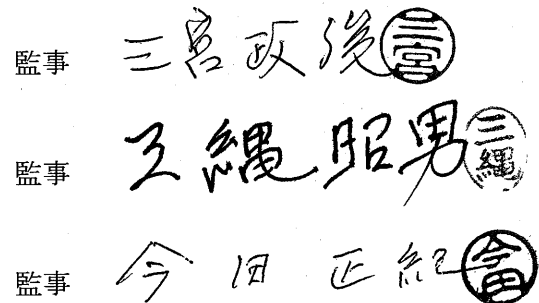 監事 三宮政俊 三宮
監事 三縄昭男 三縄
監事 今田正紀 今田